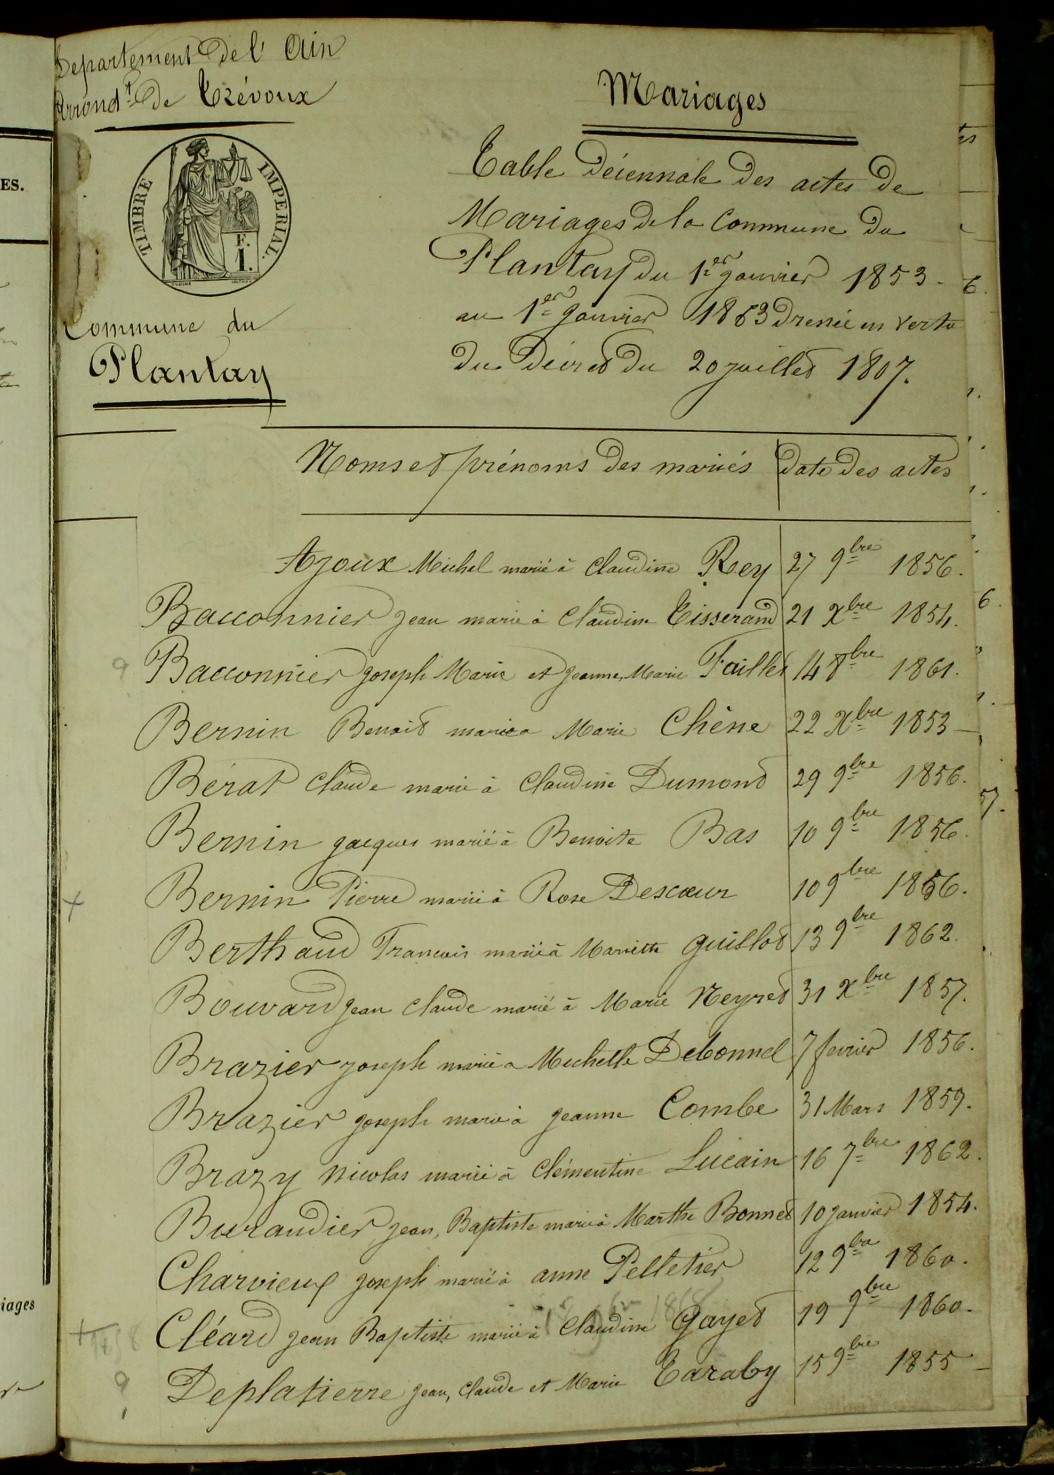 Departement de l'Ain
Arrondt de Trévoux
TIMBRE IMPERIAL
F.
1.
Commune du
Plantay
Mariages
Table Décennale des actes de
Mariages de la Commune du
Plantay du 1er janvier 1853.
au 1er Janvier 1863 Dressée en vertu
du Décret du 20 juillet 1807.
Noms et prénoms des mariés date des actes
Ajoux Michel marié à Claudine Rey 27 9bre 1856.
Bacconnier jean marié à Claudine Tisserand 21 Xbre 1854.
Bacconnier joseph Marie et jeanne, Marie Faillet 14 8bre 1861.
Bernin Benoit marié a Marie Chêne 22 Xbre 1853
Bérat Claude marié à Claudine Dumond 29 9bre 1856.
Bernin jacques marié à Benoite Bas 10 9bre 1856.
Bernin Pierre marié à Rose Descœur 10 9bre 1856.
Berthaud Francois marié à Mariette Guillot 13 9bre 1862.
Bouvard jean Claude marié à Marie Neyret 31 Xbre 1857.
Brazier joseph marié a Michelle Debonnel 7 fevrier 1856.
Brazier joseph marié à jeanne Combe 31 Mars 1859.
Brazy nicolas marié à Clémentine Lucain 16 7bre 1862.
Buraudier jean, Baptiste marié à Marthe Bonnet 10 janvier 1854.
Charvieux joseph marié à anne Pelletier 12 9bre 1860.
Cléard jean Baptiste marié à Claudine Gayet 19 9bre 1860.
Deplatierre jean, Claude et Marie Taraby 15 9bre 1855
ES.
iages